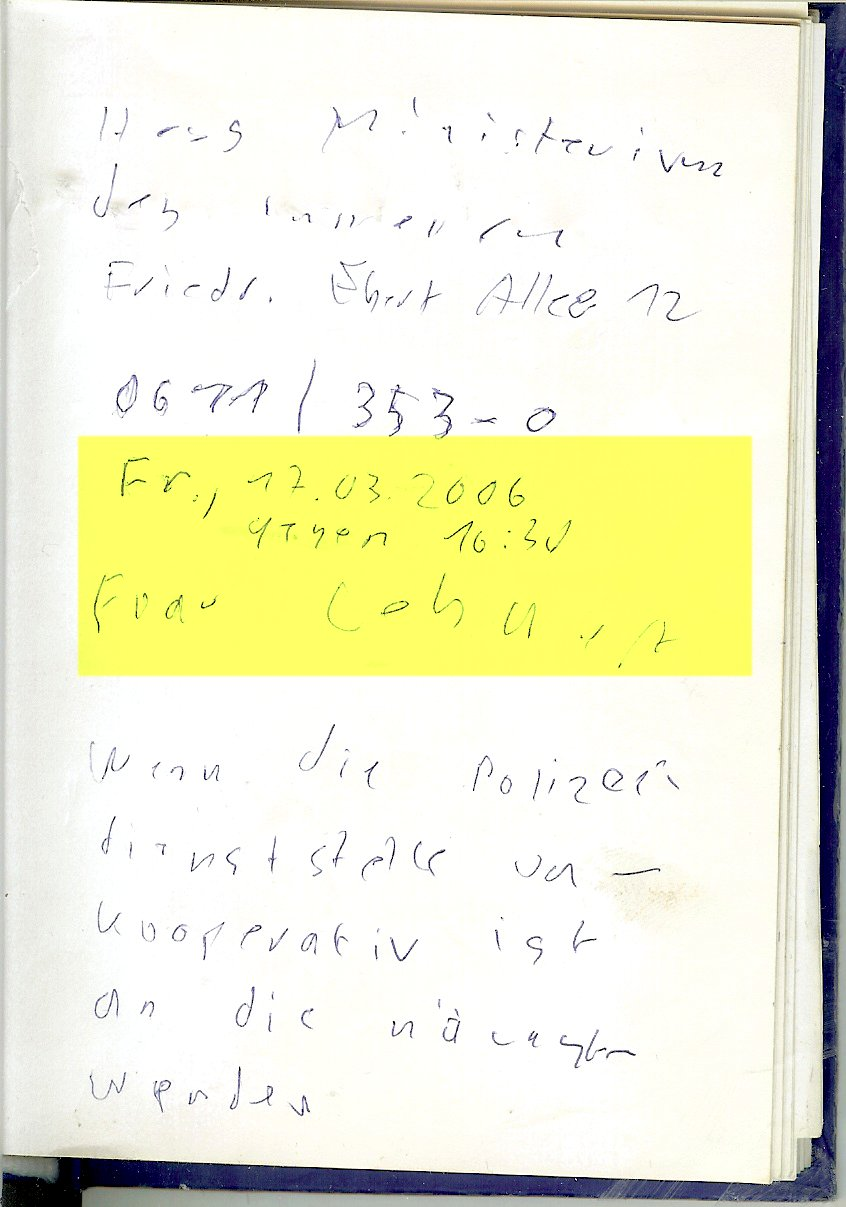 Hess Ministerium
des inneren
Friedr. Ebert Allee 12
0611 / 353-0
Fr., 17.03.2006
gegen 16:30
Frau
Wenn die Polizei
dienststelle un-
kooperativ ist
an die nächste
wenden